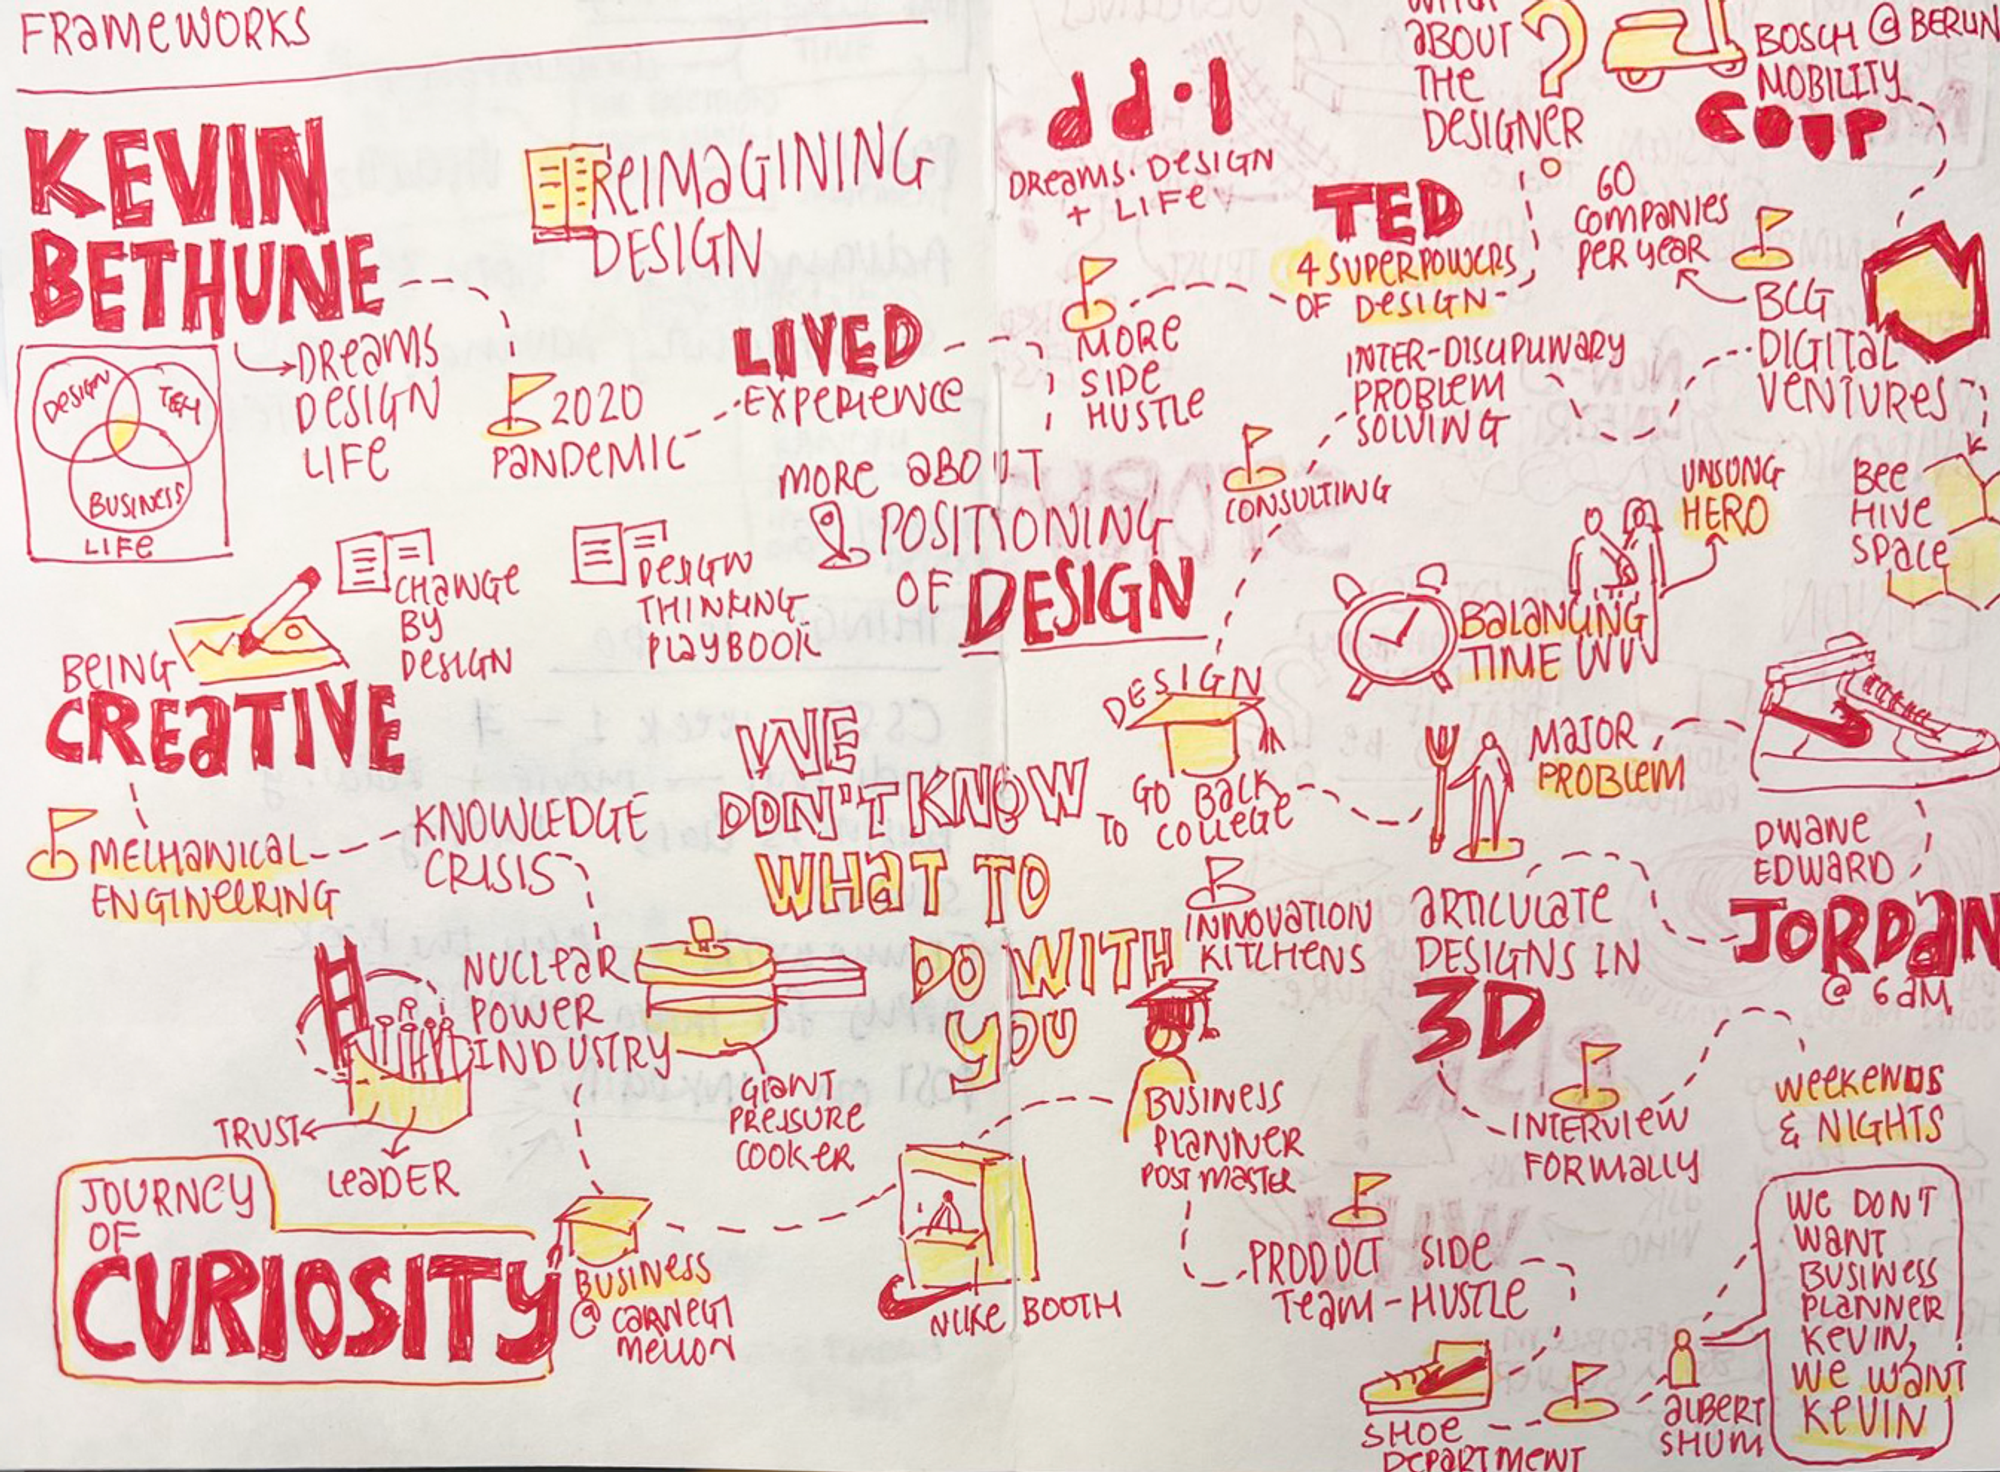 FRAMEWORKS
KEVIN
BETHUNE
DREAMS
DESIGN
LIFE
DESIGN
TECH
BUSINESS
LIFE
REIMAGINING
DESIGN
2020
PANDEMIC
LIVED
EXPERIENCE
MORE ABOUT
POSITIONING
OF DESIGN
CHANGE
BY
DESIGN
DESIGN
THINKING
PLAYBOOK
BEING
CREATIVE
MECHANICAL
ENGINEERING
KNOWLEDGE
CRISIS
NUCLEAR
POWER
INDUSTRY
GIANT
PRESSURE
COOKER
TRUST
LEADER
JOURNEY
OF
CURIOSITY
BUSINESS
@ CARNEGI
MELLON
NIKE BOOTH
WE
DON'T KNOW
WHAT TO
DO WITH
YOU
BUSINESS
PLANNER
POST MASTER
PRODUCT SIDE
TEAM - HUSTLE
SHOE
DEPARTMENT
ALBERT
SHUM
WE DON'T
WANT
BUSINESS
PLANNER
KEVIN,
WE WANT
KEVIN
WEEKENDS
& NIGHTS
INTERVIEW
FORMALLY
ARTICULATE
DESIGNS IN
3D
JORDAN
@ 6 AM
DWANE
EDWARD
MAJOR
PROBLEM
INNOVATION
KITCHENS
DESIGN
GO BACK
TO COLLEGE
BALANCING
TIME W
UNSUNG
HERO
CONSULTING
INTER-DISCIPLINARY
PROBLEM
SOLVING
BEE
HIVE
SPACE
BCG
DIGITAL
VENTURES
GO
COMPANIES
PER YEAR
COUP
BOSCH @ BERLIN
MOBILITY
ABOUT
THE
DESIGNER
?
TED
4 SUPERPOWERS
OF DESIGN
MORE
SIDE
HUSTLE
dd.l
DREAMS. DESIGN
+ LIFE